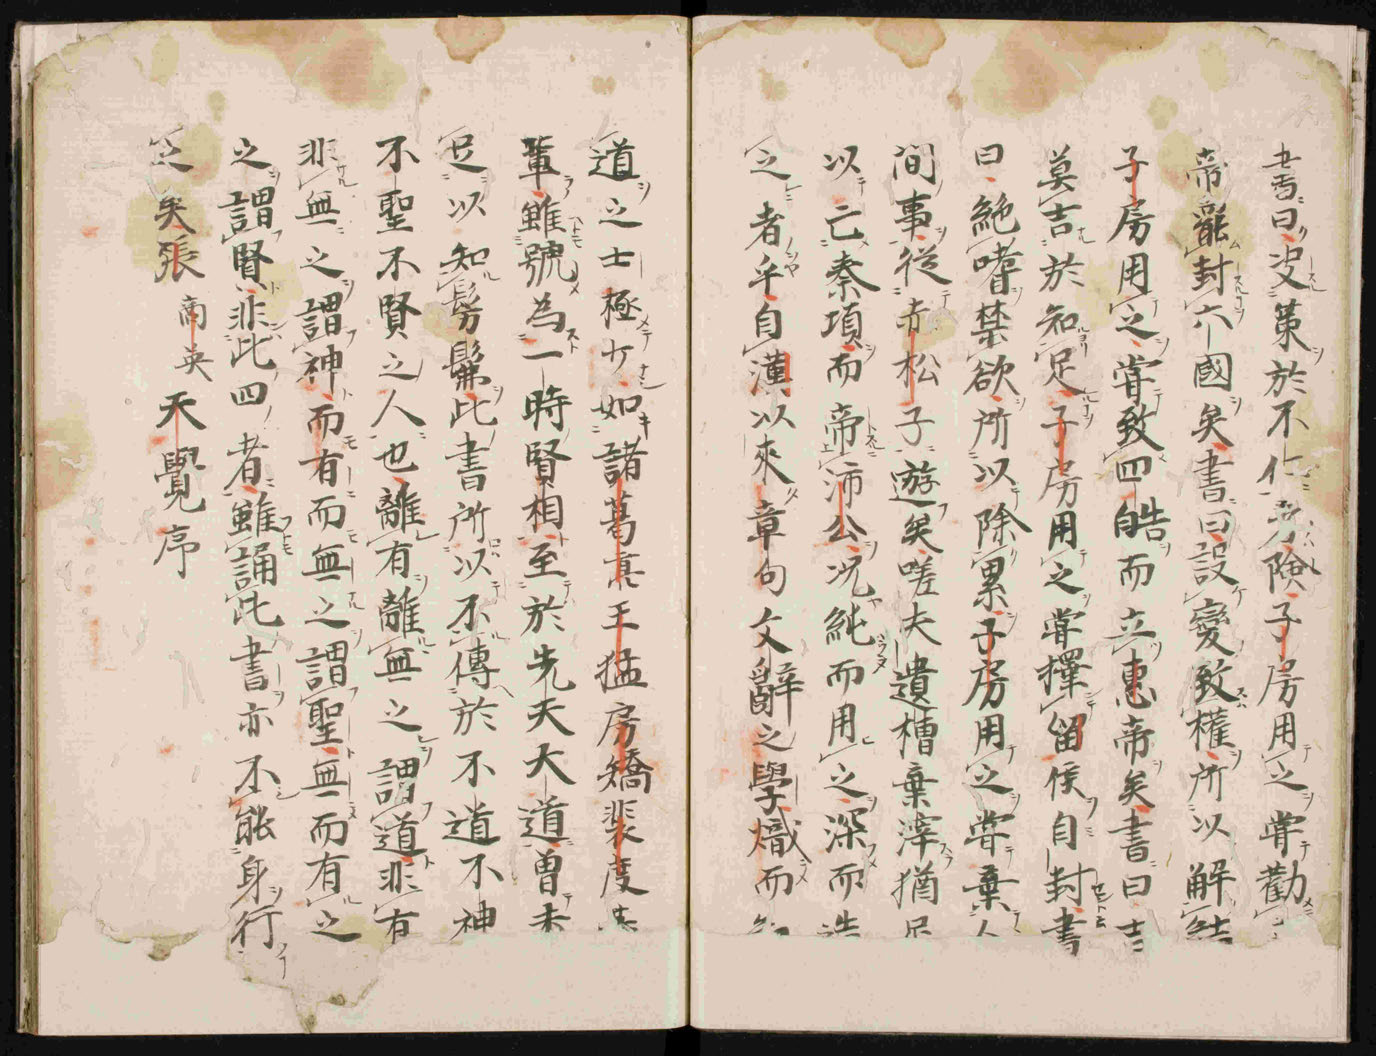 書曰決策於不仁者險子房用之甞勸
帝罷封六國矣書曰設變致權所以解結
子房用之甞致四皓而立惠帝矣書曰吉
莫吉於知足子房用之甞擇留侯自封書
曰絶嗜禁欲所以除累子房用之甞棄人
間事從赤松子遊矣嗟夫遺槽棄滓猶足
以亡秦項而帝沛公况純而用之深而造
之者乎自漢以來章句文辭之學熾而知
道之士極少如諸葛亮王猛房矯裴度等
輩雖號為一時賢相至於先天大道曽未
足以知髣髴此書所以不傳於不道不神
不聖不賢之人也離有離無之謂道非有
非無之謂神而有而無之謂聖無而有之
之謂賢非此四者雖誦此書亦不能身行
之矣張商英天覺序